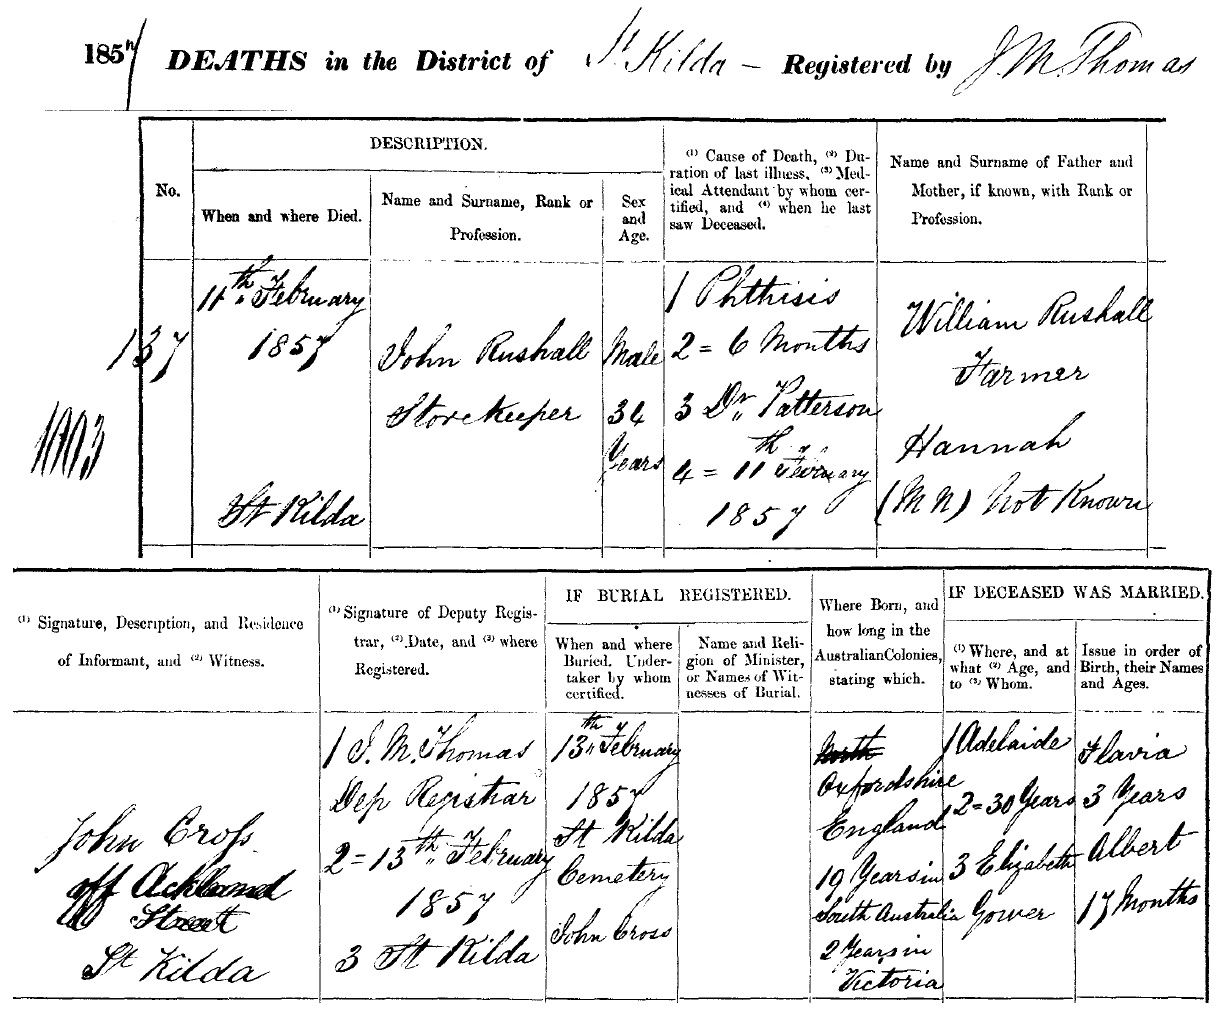 1857 DEATHS in the District of St Kilda – Registered by J. M. Thomas
No.
DESCRIPTION.
When and where Died.
Name and Surname, Rank or
Profession.
Sex
and
Age.
(1) Cause of Death, (2) Du-
ration of last illness, (3) Med-
ical Attendant by whom cer-
tified, and (4) when he last
saw Deceased.
Name and Surname of Father and
Mother, if known, with Rank or
Profession.
137
1003
11th February
1857
St Kilda
John Rushall
Storekeeper
Male
34
Years
1 Phthisis
2 = 6 Months
3 Dr Patterson
4 = 11th February
1857
William Rushall
Farmer
Hannah
(M N) Not Known
(1) Signature, Description, and Residence
of Informant, and (2) Witness.
(1) Signature of Deputy Regis-
trar, (2) Date, and (3) where
Registered.
IF BURIAL REGISTERED.
When and where
Buried. Under-
taker by whom
certified.
Name and Reli-
gion of Minister,
or Names of Wit-
nesses of Burial.
Where Born, and
how long in the
Australian Colonies,
stating which.
IF DECEASED WAS MARRIED.
(1) Where, and at
what (2) Age, and
to (3) Whom.
Issue in order of
Birth, their Names
and Ages.
John Cross
off Ackland
Street
St Kilda
1 J. M. Thomas
Dep Registrar
2 = 13th February
1857
3 St Kilda
13th February
1857
St Kilda
Cemetery
John Cross
North
Oxfordshire
England
19 Years in
South Australia
2 Years in
Victoria
1 Adelaide
2 = 30 Years
3 Elizabeth
Gower
Flavia
3 Years
Albert
17 Months